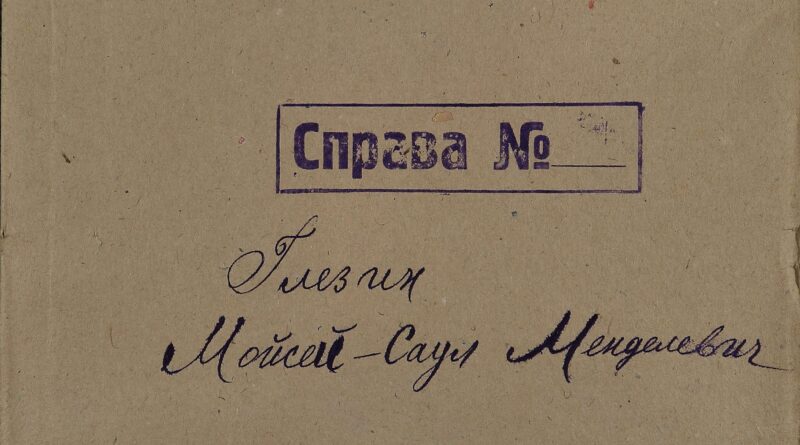 Справа №
Глезин
Мойсей-Саул Менделевич